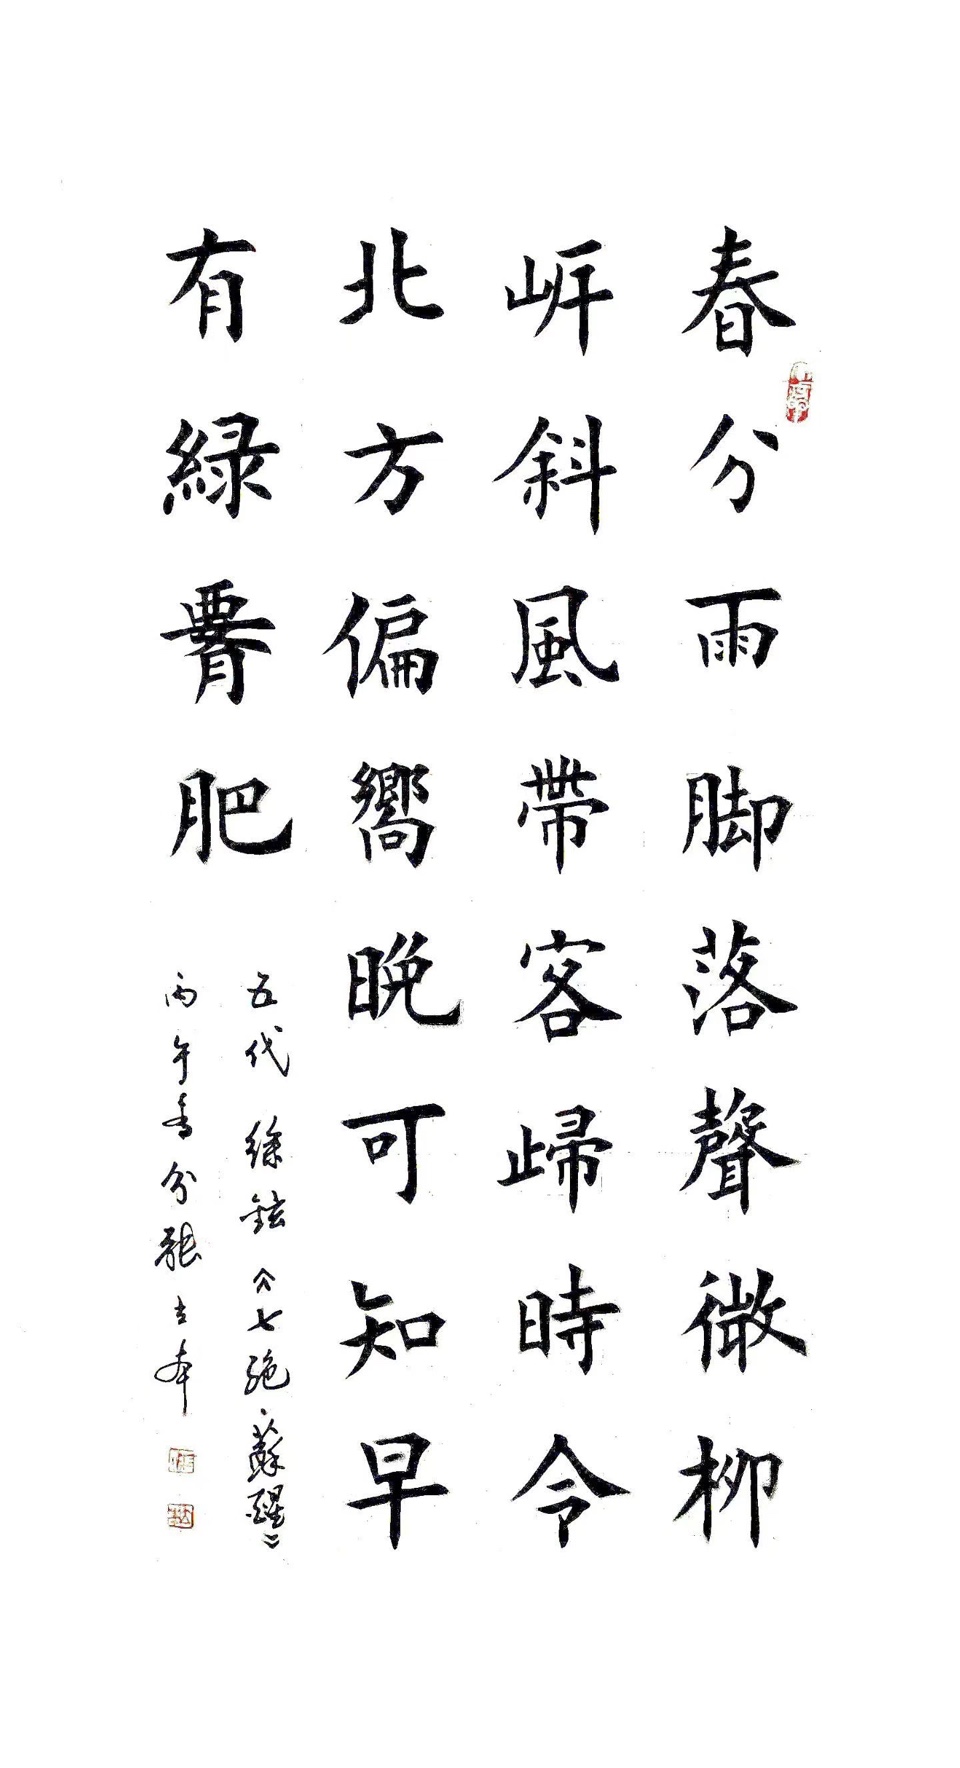 春分雨脚落聲微柳
岸斜風帶客歸時令
北方偏嚮晚可知早
有緑腰肥
五代徐鉉《七絶·蘇醒》
丙午春分張